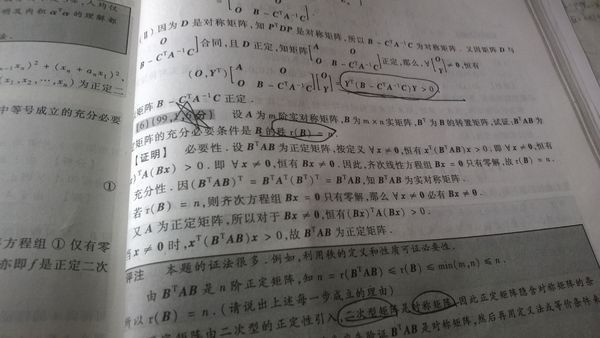 明及内积 αᵀα 的理解都
O B − CᵀA⁻¹C
(Ⅱ)因为 D 是对称矩阵,知 PᵀDP 是对称矩阵,所以 B − CᵀA⁻¹C 为对称矩阵. 又因矩阵 D 与
[A O
O B − CᵀA⁻¹C] 合同,且 D 正定,知矩阵 [A O
O B − CᵀA⁻¹C] 正定,那么,∀ [O
Y] ≠ 0,恒有
(O,Yᵀ) [A O
O B − CᵀA⁻¹C] [O
Y] = Yᵀ(B − CᵀA⁻¹C)Y > 0.
矩阵 B − CᵀA⁻¹C 正定.
设 A 为 m 阶实对称矩阵,B 为 m × n 实矩阵,Bᵀ 为 B 的转置矩阵,试证:BᵀAB 为
矩阵的充分必要条件是 B 的秩 r(B) = n.
【证明】 必要性. 设 BᵀAB 为正定矩阵,按定义 ∀x ≠ 0,恒有 xᵀ(BᵀAB)x > 0,即 ∀x ≠ 0,恒有
)ᵀA(Bx) > 0. 即 ∀x ≠ 0,恒有 Bx ≠ 0. 因此,齐次线性方程组 Bx = 0 只有零解,故 r(B) = n.
充分性. 因(BᵀAB)ᵀ = BᵀAᵀ(Bᵀ)ᵀ = BᵀAB,知 BᵀAB 为实对称矩阵.
若 r(B) = n,则齐次方程组 Bx = 0 只有零解,那么 ∀x ≠ 0 必有 Bx ≠ 0.
又 A 为正定矩阵,所以对于 Bx ≠ 0,恒有(Bx)ᵀA(Bx) > 0.
当 x ≠ 0 时,xᵀ(BᵀAB)x > 0,故 BᵀAB 为正定矩阵.
评注 本题的证法很多. 例如,利用秩的定义和性质可证必要性.
由 BᵀAB 是 n 阶正定矩阵,知 n = r(BᵀAB) ≤ r(B) ≤ min(m,n) ≤ n.
所以 r(B) = n.(请说出上述每一步成立的理由)
矩阵由二次型的正定性引入,二次型矩阵是对称矩阵,因此正定矩阵隐含对称矩阵的条
验证 BᵀAB 是对称矩阵,然后再用定义法或等价条件来
中等号成立的充分必要
①
方程组 ① 仅有零
亦即 f 是正定二次